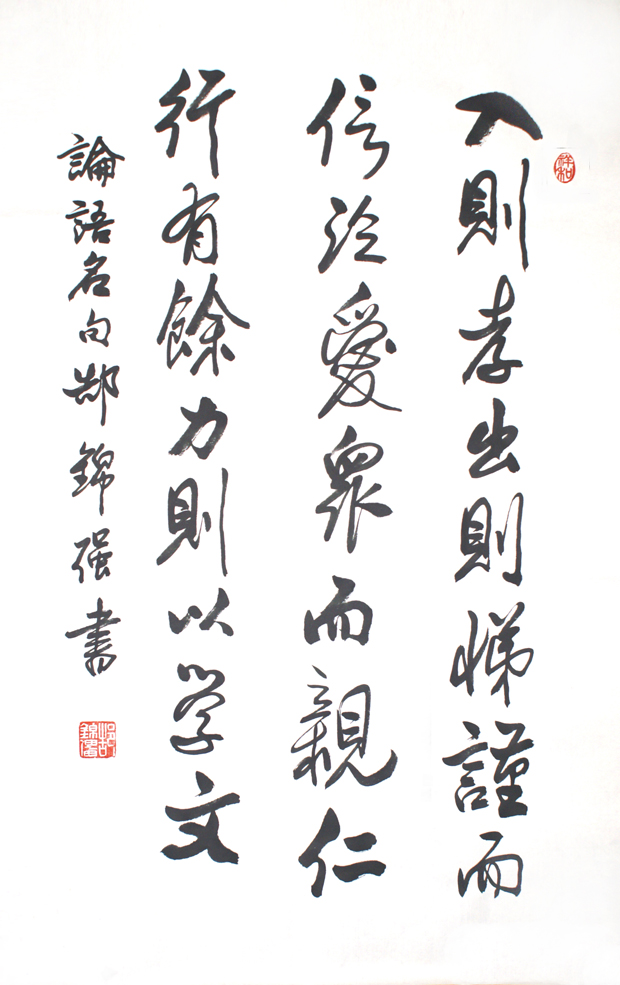 祥和
入則孝出則悌謹而
信泛愛衆而親仁
行有餘力則以学文
論語名句錦强書